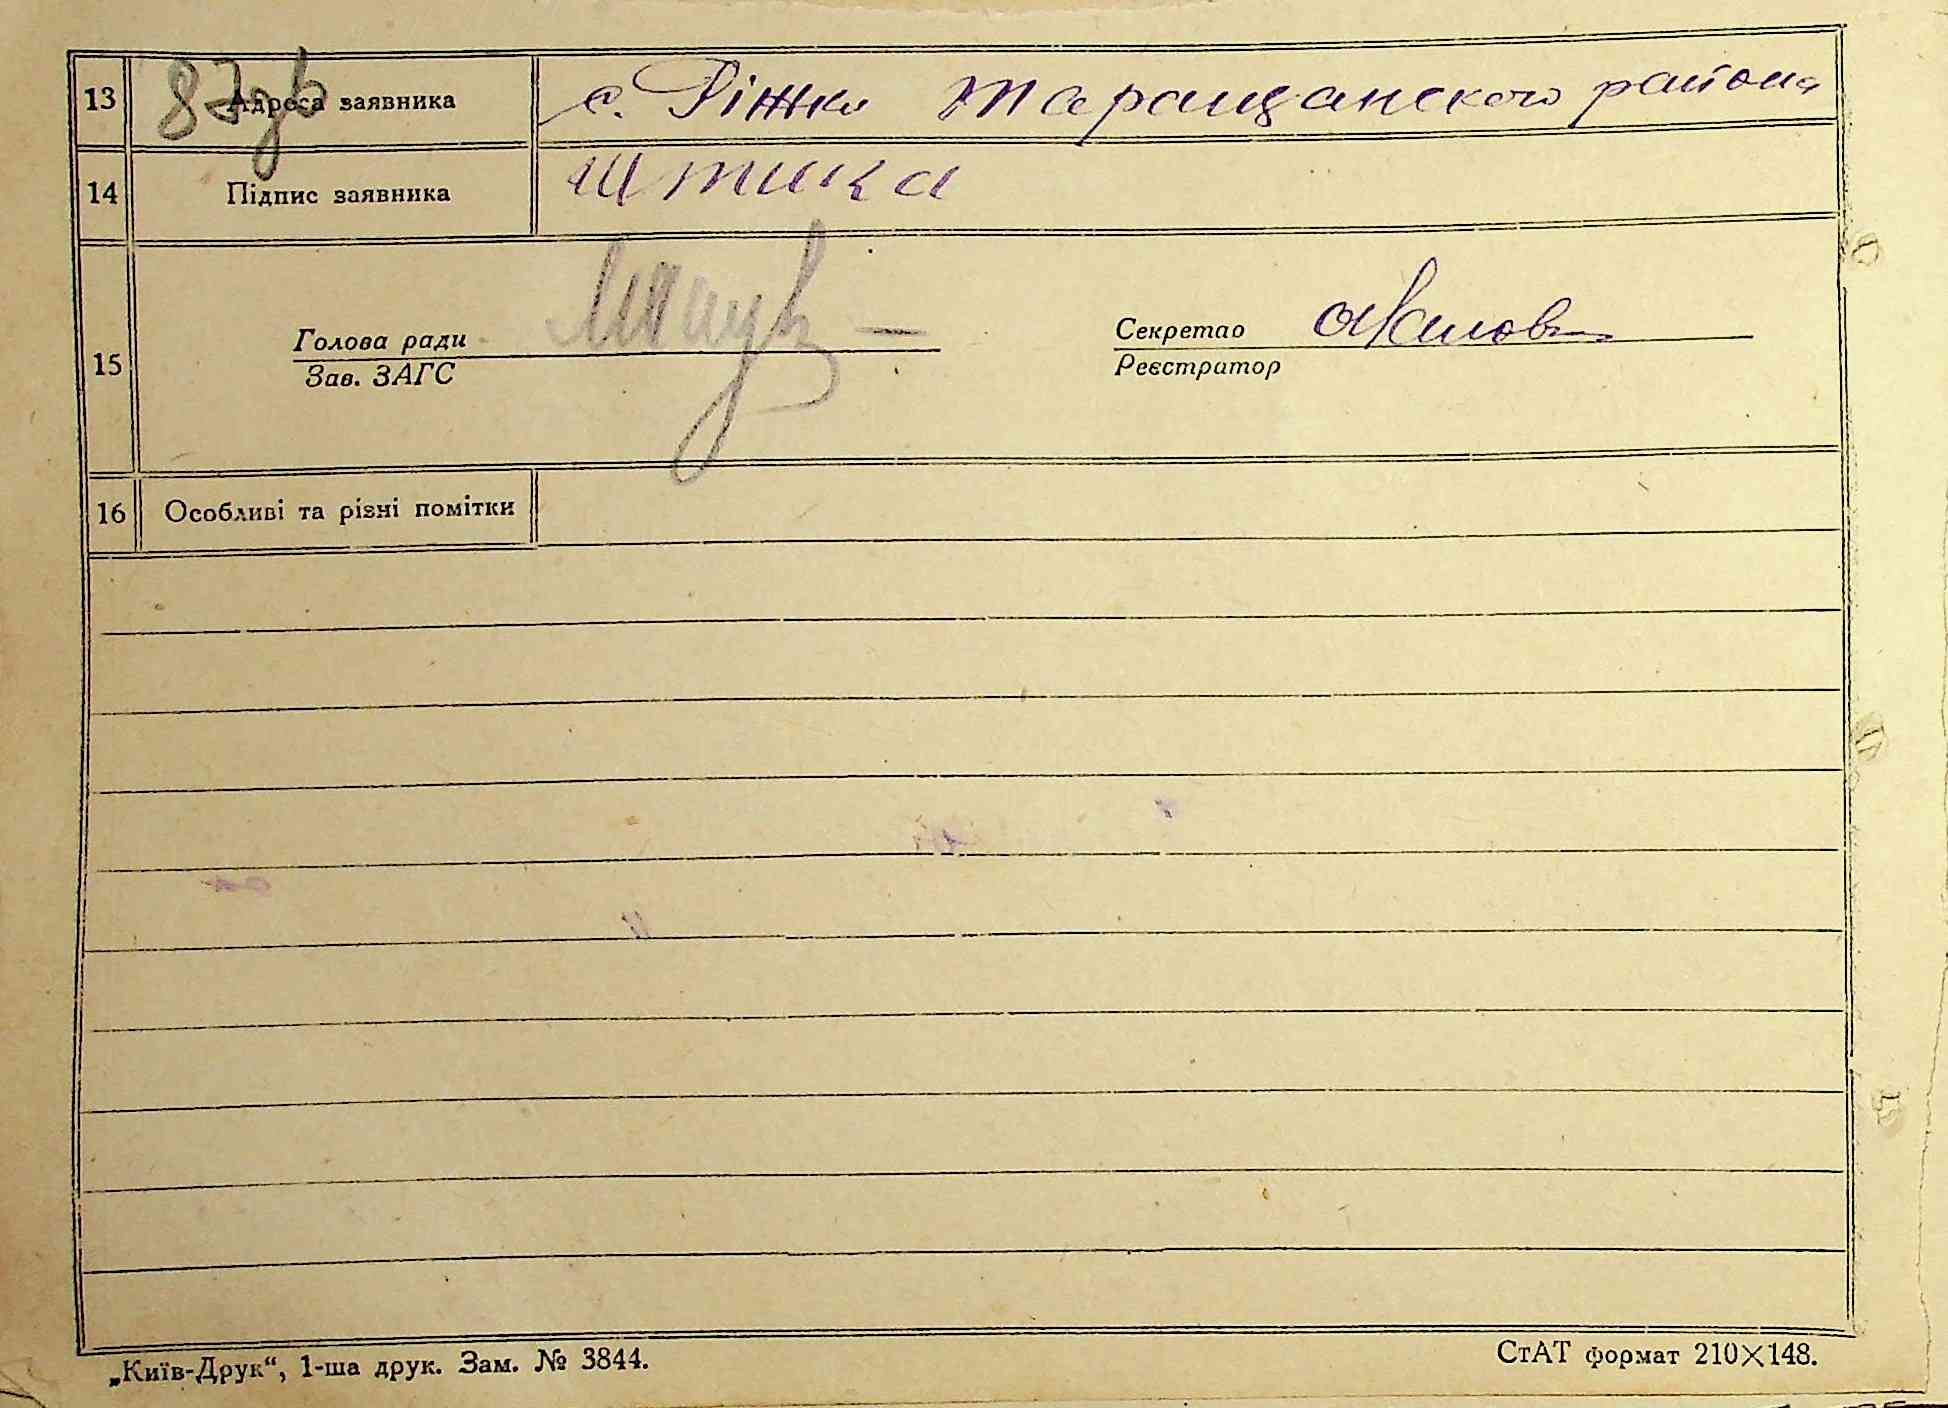 13 Адреса заявника с. Ріжки Таращанского района
87 зв
14 Підпис заявника Штика
15 Голова ради Секретар
Зав. ЗАГС Реєстратор
16 Особливі та різні помітки
„Київ-Друк“, 1-ша друк. Зам. № 3844. СтАТ формат 210×148.